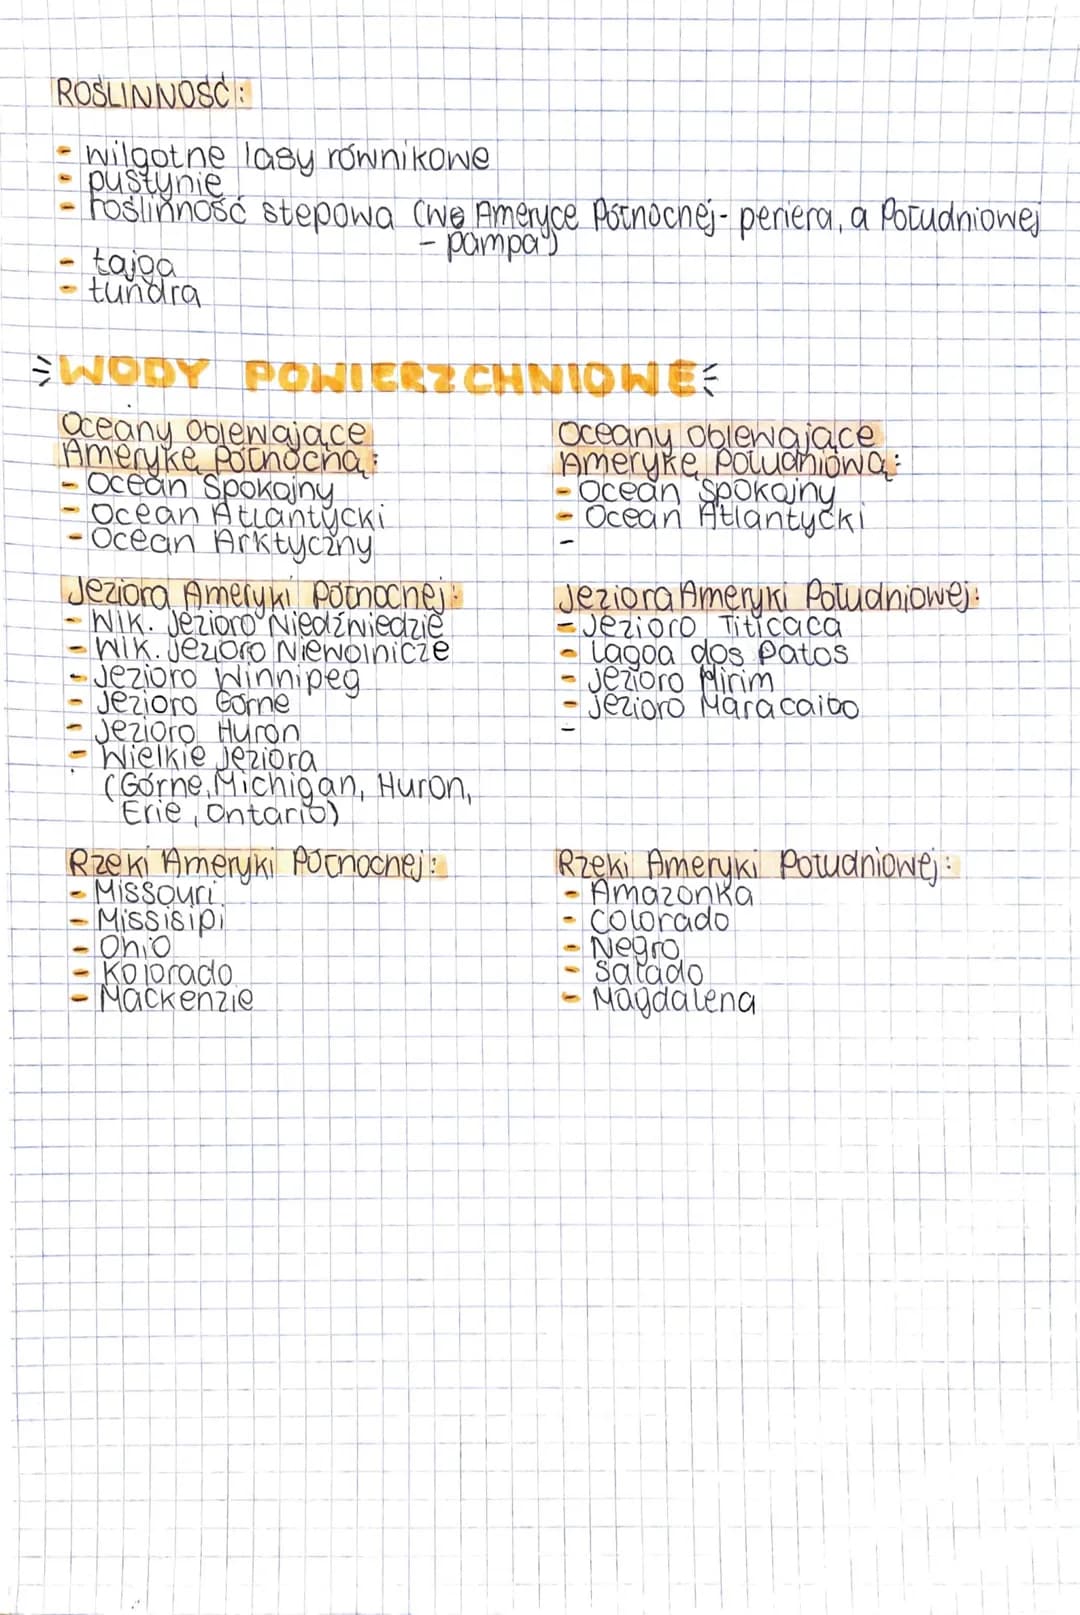 ROŚLINNOŚĆ:
- wilgotne lasy równikowe
- pustynie
- roślinność stepowa (we Ameryce Północnej- periera, a Południowej
- pampa)
- tajga
- tundra
WODY POWIERZCHNIOWE
Oceany oblewające
Amerykę Północną:
- Ocean Spokojny
- Ocean Atlantycki
- Ocean Arktyczny
Jeziora Ameryki Północnej:
- Wlk. Jezioro Niedźwiedzie
- Wlk. Jezioro Niewolnicze
- Jezioro Winnipeg
- Jezioro Górne
- Jezioro Huron
- Wielkie Jeziora
(Górne, Michigan, Huron,
Erie, Ontario)
Rzeki Ameryki Północnej:
- Missouri
- Missisipi
- Ohio
- Kolorado
- Mackenzie
Oceany oblewające
Amerykę Południową:
- Ocean Spokojny
- Ocean Atlantycki
-
Jeziora Ameryki Południowej:
- Jezioro Titicaca
- Lagoa dos Patos
- Jezioro Mirim
- Jezioro Maracaibo
-
Rzeki Ameryki Południowej:
- Amazonka
- Colorado
- Negro
- Salado
- Magdalena